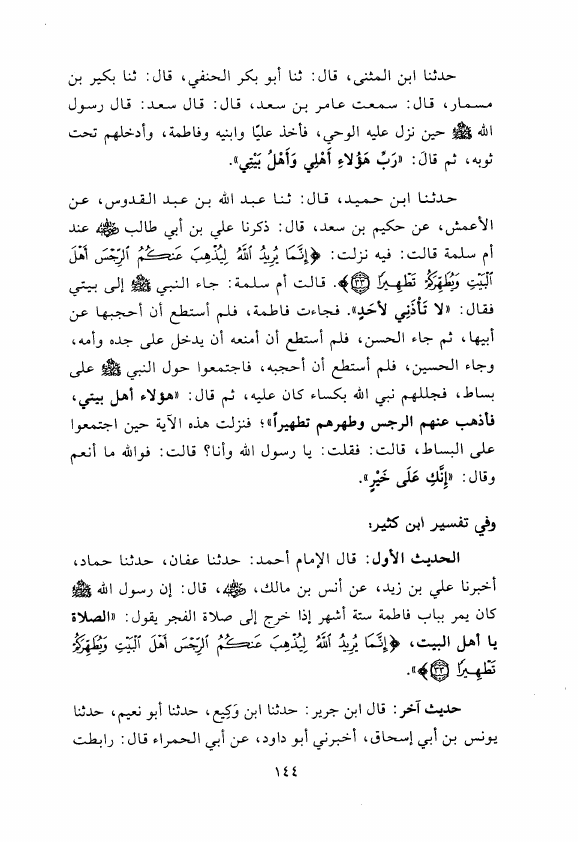 حدثنا ابن المثنى، قال: ثنا أبو بكر الحنفي، قال: ثنا بكير بن
مسمار، قال: سمعت عامر بن سعد، قال: قال سعد: قال رسول
الله ﷺ حين نزل عليه الوحي، فأخذ عليًا وابنيه وفاطمة، وأدخلهم تحت
ثوبه، ثم قال: «رَبِّ هَؤُلاءِ أَهْلِي وَأَهْلُ بَيْتِي».
حدثنا ابن حميد، قال: ثنا عبد الله بن عبد القدوس، عن
الأعمش، عن حكيم بن سعد، قال: ذكرنا علي بن أبي طالب رضي الله عنه عند
أم سلمة قالت: فيه نزلت: ﴿إِنَّمَا يُرِيدُ اللَّهُ لِيُذْهِبَ عَنكُمُ الرِّجْسَ أَهْلَ
الْبَيْتِ وَيُطَهِّرَكُمْ تَطْهِيرًا ٣٣﴾. قالت أم سلمة: جاء النبي ﷺ إلى بيتي
فقال: «لا تَأْذَنِي لأَحَدٍ». فجاءت فاطمة، فلم أستطع أن أحجبها عن
أبيها، ثم جاء الحسن، فلم أستطع أن أمنعه أن يدخل على جده وأمه،
وجاء الحسين، فلم أستطع أن أحجبه، فاجتمعوا حول النبي ﷺ على
بساط، فجللهم نبي الله بكساء كان عليه، ثم قال: «هؤلاء أهل بيتي،
فأذهب عنهم الرجس وطهرهم تطهيراً»؛ فنزلت هذه الآية حين اجتمعوا
على البساط، قالت: فقلت: يا رسول الله وأنا؟ قالت: فوالله ما أنعم
وقال: «إِنَّكِ عَلَى خَيْرٍ».
وفي تفسير ابن كثير:
الحديث الأول: قال الإمام أحمد: حدثنا عفان، حدثنا حماد،
أخبرنا علي بن زيد، عن أنس بن مالك، رضي الله عنه، قال: إن رسول الله ﷺ
كان يمر بباب فاطمة ستة أشهر إذا خرج إلى صلاة الفجر يقول: «الصلاة
يا أهل البيت، ﴿إِنَّمَا يُرِيدُ اللَّهُ لِيُذْهِبَ عَنكُمُ الرِّجْسَ أَهْلَ الْبَيْتِ وَيُطَهِّرَكُمْ
تَطْهِيرًا ٣٣﴾».
حديث آخر: قال ابن جرير: حدثنا ابن وَكِيع، حدثنا أبو نعيم، حدثنا
يونس بن أبي إسحاق، أخبرني أبو داود، عن أبي الحمراء قال: رابطت
١٤٤